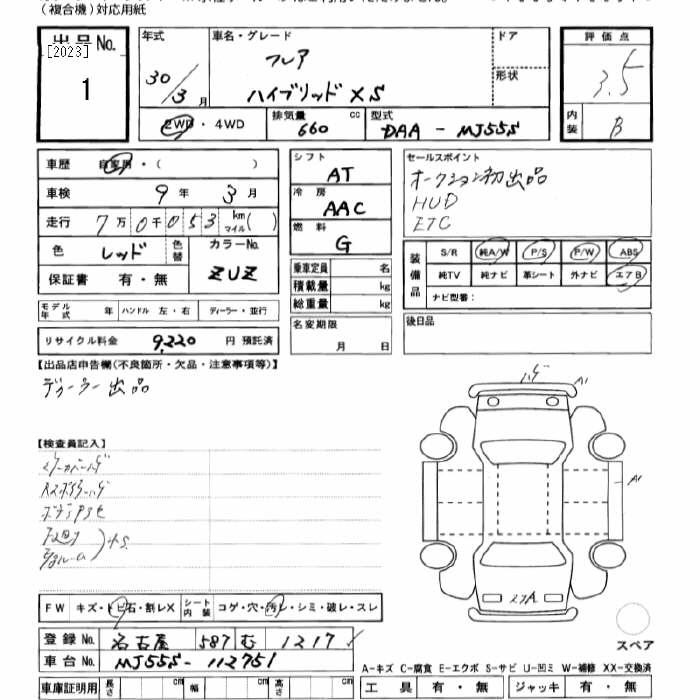 (複合機)対応用紙
出品 No.
[2023]
1
年式
30/3 月
車名・グレード
フレア
ハイブリッド XS
ドア
形状
2WD ・ 4WD
排気量 660 cc
型式 DAA - MJ55S
評価点
3.5
内装 B
車歴 自家用・( )
車検 9 年 3 月
走行 7万0千053 km マイル( )
色 レッド 色替
カラーNo. ZUZ
保証書 有・無
モデル年式 年 ハンドル 左・右 ディーラー・並行
リサイクル料金 9,220 円 預託済
シフト AT
冷房 AAC
燃料 G
乗車定員 名
積載量 kg
総重量 kg
名変期限
月 日
セールスポイント
オークション初出品
HUD
ETC
装備品
S/R 純A/W P/S P/W ABS
純TV 純ナビ 革シート 外ナビ エアB
ナビ型番:
後日品
【出品店申告欄(不良箇所・欠品・注意事項等)】
ディーラー出品
【検査員記入】
A1
A1
FW キズ・トビ石・割レX シート内装 コゲ・穴・汚レ・シミ・破レ・スレ
登録 No. 名古屋 587 む 1217
車台 No. MJ55S-112751
スペア
A-キズ C-腐食 E-エクボ S-サビ U-凹ミ W-補修 XX-交換済
車庫証明用 長さ cm 幅 cm 高さ cm
工具 有・無 ジャッキ 有・無